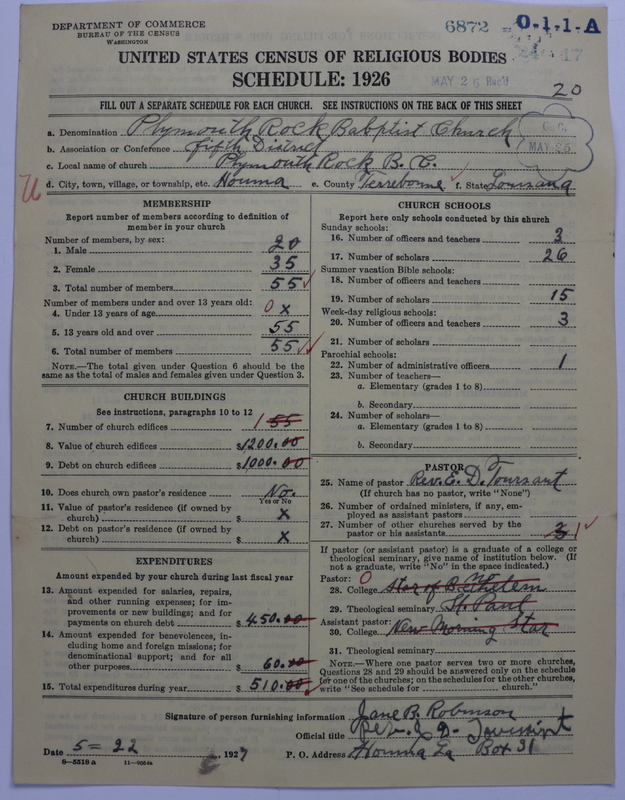 DEPARTMENT OF COMMERCE
BUREAU OF THE CENSUS
WASHINGTON
6872 0-1-1-A
UNITED STATES CENSUS OF RELIGIOUS BODIES
SCHEDULE: 1926
MAY 26 Rec'd
20
FILL OUT A SEPARATE SCHEDULE FOR EACH CHURCH. SEE INSTRUCTIONS ON THE BACK OF THIS SHEET
a. Denomination Plymouth Rock Babptist Church
b. Association or Conference fifth District
G. C. MAY 26
c. Local name of church Plymouth Rock B. C.
d. City, town, village, or township, etc. Houma e. County Terrebonne f. State Louisana
MEMBERSHIP
Report number of members according to definition of
member in your church
Number of members, by sex:
1. Male 20
2. Female 35
3. Total number of members 55
Number of members under and over 13 years old:
4. Under 13 years of age 0 x
5. 13 years old and over 55
6. Total number of members 55
NOTE.—The total given under Question 6 should be
same as the total of males and females given under Question 3.
CHURCH BUILDINGS
See instructions, paragraphs 10 to 12
7. Number of church edifices 1 55
8. Value of church edifices $1200.00
9. Debt on church edifices $1000.00
10. Does church own pastor's residence No.
Yes or No
11. Value of pastor's residence (if owned by
church) $ x
12. Debt on pastor's residence (if owned by
church) $ x
EXPENDITURES
Amount expended by your church during last fiscal year
13. Amount expended for salaries, repairs,
and other running expenses; for im-
provements or new buildings; and for
payments on church debt $ 450.00
14. Amount expended for benevolences, in-
cluding home and foreign missions; for
denominational support; and for all
other purposes 60.00
15. Total expenditures during year $ 510.00
CHURCH SCHOOLS
Report here only schools conducted by this church
Sunday schools:
16. Number of officers and teachers 3
17. Number of scholars 26
Summer vacation Bible schools:
18. Number of officers and teachers
19. Number of scholars 15
Week-day religious schools:
20. Number of officers and teachers 3
21. Number of scholars
Parochial schools:
22. Number of administrative officers 1
23. Number of teachers—
a. Elementary (grades 1 to 8)
b. Secondary
24. Number of scholars—
a. Elementary (grades 1 to 8)
b. Secondary
PASTOR
25. Name of pastor Rev. E. D. Toursant
(If church has no pastor, write "None")
26. Number of ordained ministers, if any, em-
ployed as assistant pastors
27. Number of other churches served by the
pastor or his assistants 3 1
If pastor (or assistant pastor) is a graduate of a college or
theological seminary, give name of institution below. (If
not a graduate, write "No" in the space indicated.)
Pastor: 0 no
28. College Star of Bethlehem
29. Theological seminary St. Paul
Assistant pastor:
30. College New Morning Star
31. Theological seminary
NOTE.—Where one pastor serves two or more churches,
Questions 28 and 29 should be answered only on the schedule
for one of the churches; on the schedules for the other churches,
write "See schedule for church."
Signature of person furnishing information Jane B. Robinson
Official title Rev. E. D. Toussint
Date 5=22, 1927 P. O. Address Houma La Box 31
8—5518 a 11—9554a